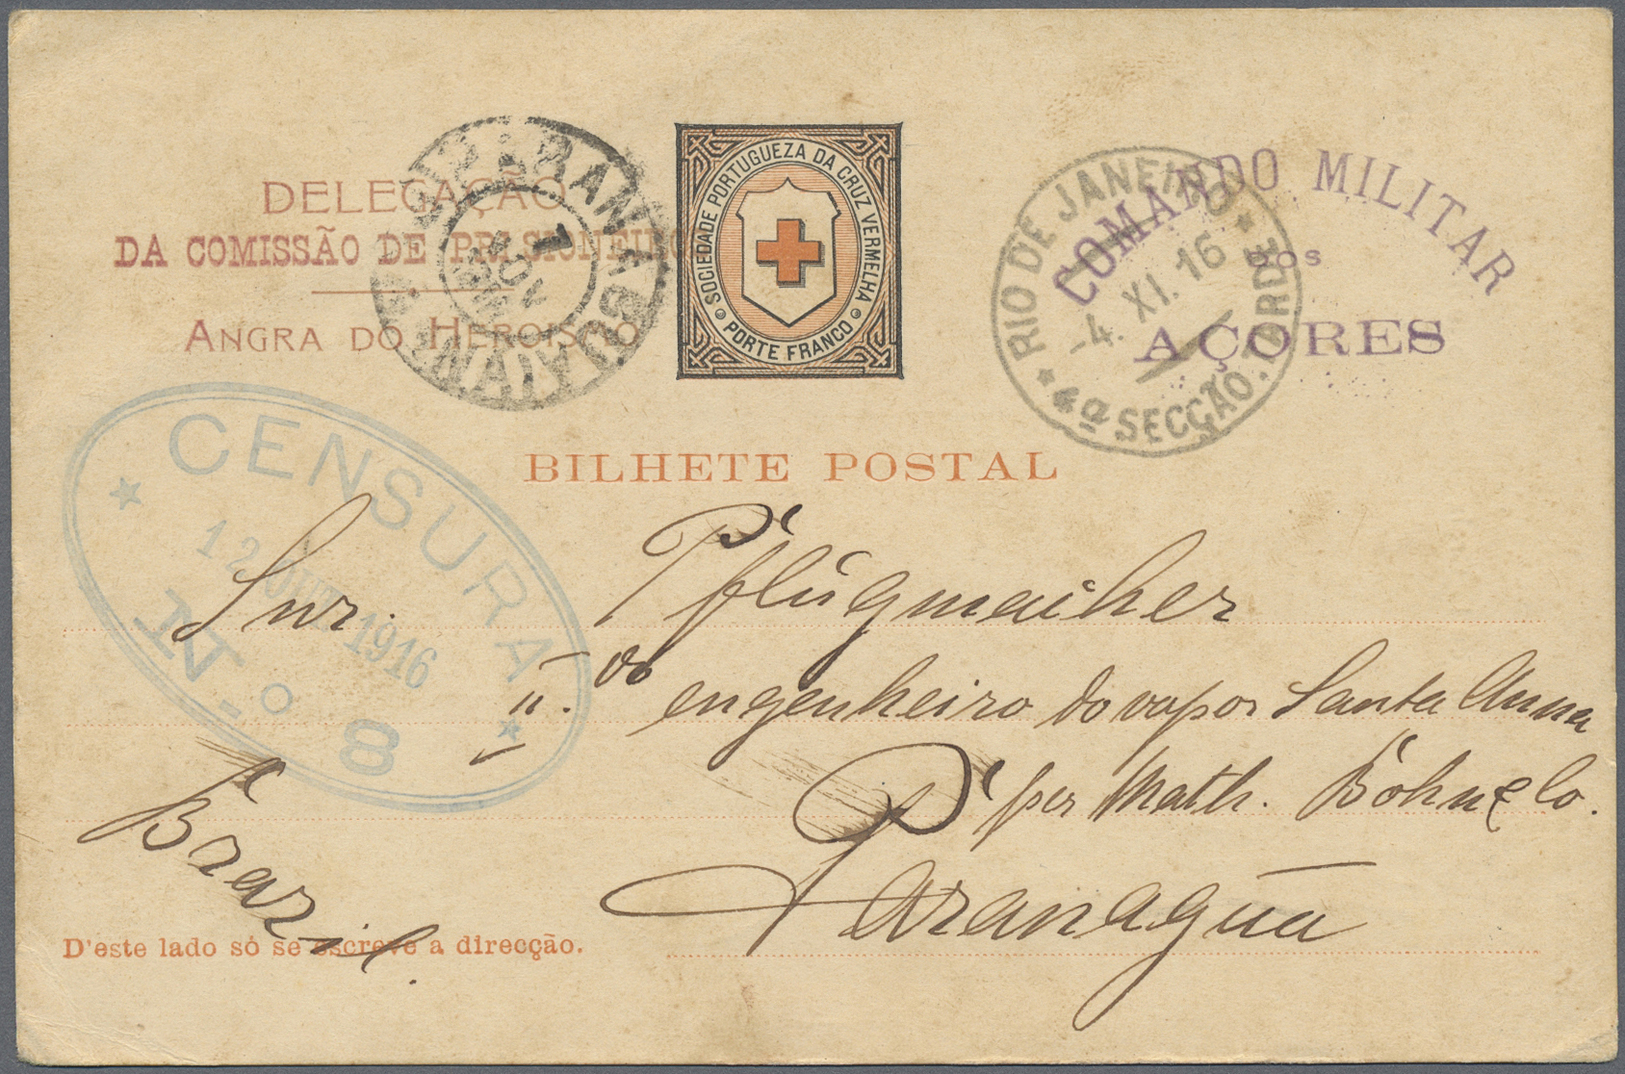 DELEGAÇÃO
DA COMISSÃO DE PRISIONEIROS
ANGRA DO HEROISMO
1
NOV
SOCIEDADE PORTUGUEZA DA CRUZ VERMELHA
PORTE FRANCO
RIO DE JANEIRO
-4. XI. 16
4ª SECÇÃO. TARDE
COMANDO MILITAR
DOS
AÇORES
BILHETE POSTAL
CENSURA
12 OUT 1916
N.º 8
Snr. Pflügmaiher
II. do engenheiro do vapor Santa Anna
per Math. Böhn & Co.
Paranaguá
Brazil.
D'este lado só se escreve a direcção.